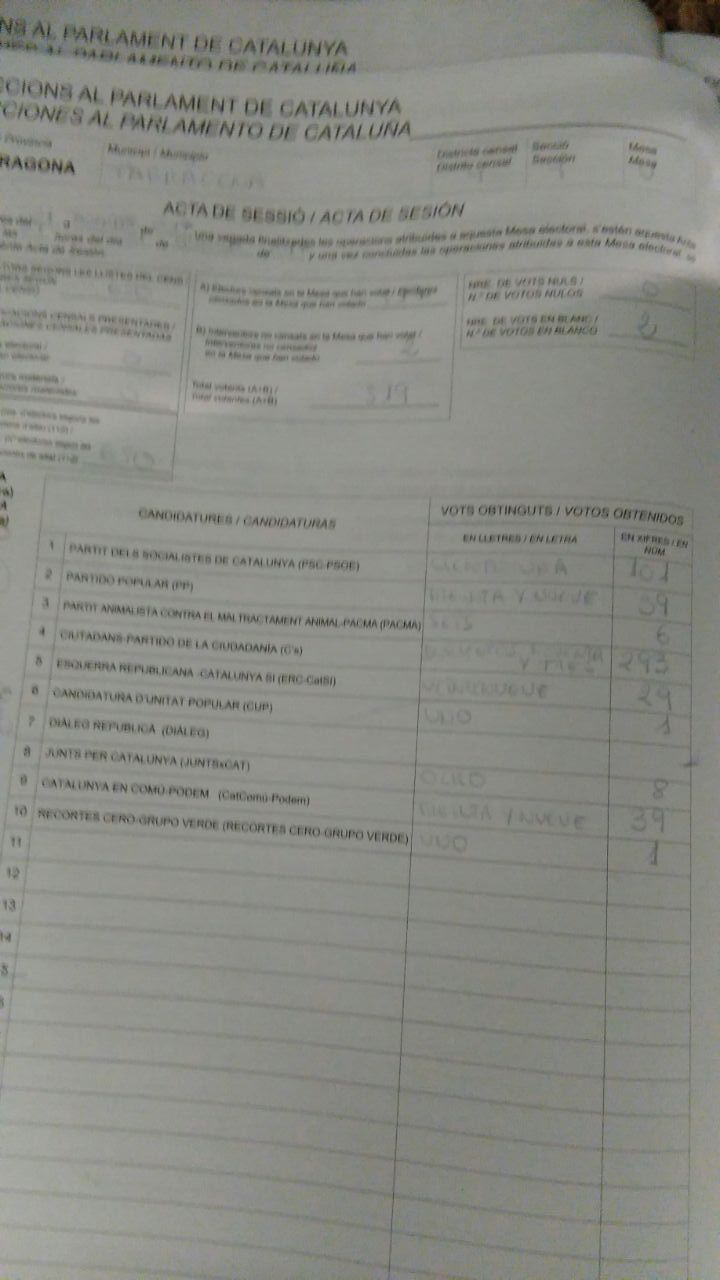 NS AL PARLAMENT DE CATALUNYA
AL PARLAMENTO DE CATALUÑA
CCIONS AL PARLAMENT DE CATALUNYA
CCIONES AL PARLAMENTO DE CATALUÑA
Província
RAGONA
Municipi / Municipio
TARRAGONA
Districte censal
Distrito censal
Secció
Sección
Mesa
Mesa
ACTA DE SESSIÓ / ACTA DE SESIÓN
Una vegada finalitzades les operacions atribuïdes a aquesta Mesa electoral, s'estén aquesta
y una vez concluidas las operaciones atribuidas a esta Mesa electoral, se
A) Electors censats en la Mesa que han votat / Electores
censados en la Mesa que han votado
B) Interventors no censats en la Mesa que han votat /
Interventores no censados
en la Mesa que han votado
2
Total votants (A+B) /
Total votantes (A+B)
519
NRE. DE VOTS NULS /
N.º DE VOTOS NULOS
0
NRE. DE VOTS EN BLANC /
N.º DE VOTOS EN BLANCO
2
CANDIDATURES / CANDIDATURAS
VOTS OBTINGUTS / VOTOS OBTENIDOS
EN LLETRES / EN LETRA
EN XIFRES / EN NÚM
1 PARTIT DELS SOCIALISTES DE CATALUNYA (PSC-PSOE) 101
2 PARTIDO POPULAR (PP) TREINTA Y NUEVE 39
3 PARTIT ANIMALISTA CONTRA EL MALTRACTAMENT ANIMAL-PACMA (PACMA) SEIS 6
4 CIUTADANS-PARTIDO DE LA CIUDADANÍA (C's) Y TRES 293
5 ESQUERRA REPUBLICANA -CATALUNYA SÍ (ERC-CatSí) VEINTINUEVE 29
6 CANDIDATURA D'UNITAT POPULAR (CUP) UNO 1
7 DIÀLEG REPÚBLICA (DIÀLEG)
8 JUNTS PER CATALUNYA (JUNTSxCAT) OCHO 8
9 CATALUNYA EN COMÚ-PODEM (CatComú-Podem) TREINTA Y NUEVE 39
10 RECORTES CERO-GRUPO VERDE (RECORTES CERO-GRUPO VERDE) UNO 1
11
12
13
14
5